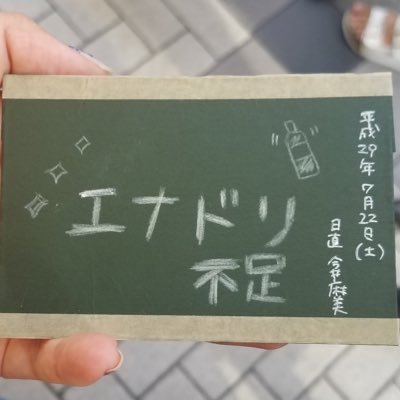 平成29年7月22日(土)
日直 今井麻美
エナドリ
不足